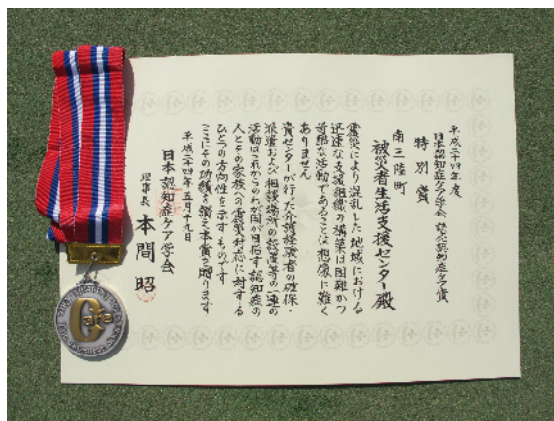 平成二十四年度
日本認知症ケア学会 読売認知症ケア賞
特別賞
南三陸町
被災者生活支援センター殿
震災により混乱した地域における
迅速な支援組織の構築は困難かつ
奇特な活動であることは想像に難く
ありません
貴センターが行った介護経験者の確保・
派遣および相談場所の設置等の一連の
活動はこれからのわが国が目指す認知症の
人とその家族への震災対応に対する
ひとつの方向性を示すものです
ここにその功績を讃え本賞を贈ります
平成二十四年五月十九日
日本認知症ケア学会
理事長 本間昭
Care